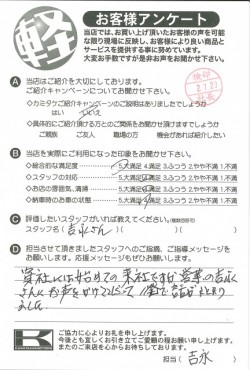 軽
お客様アンケート
当店では、お買い上げ頂いたお客様の声を可能
な限り現場に反映し、お客様により良い商品と
サービスを提供する事に努めています。
大変お手数ですが是非お声をお聞かせ下さい。
A 当店はご紹介を大切にしております。
ご紹介キャンペーンについてお聞かせ下さい。
・カミタケご紹介キャンペーンのご説明はありましたでしょうか
はい いいえ
・具体的にご紹介頂ける方とのご関係をお聞かせ頂けますでしょうか
ご親族 ご友人 職場の方 機会があれば紹介したい
B 当店を実際にご利用になった印象をお聞かせ下さい。
◇総合的な満足度 5.大満足 4.満足 3.ふつう 2.やや不満 1.不満
◇スタッフの対応 5.大満足 4.満足 3.ふつう 2.やや不満 1.不満
◇お店の雰囲気、清掃 5.大満足 4.満足 3.ふつう 2.やや不満 1.不満
◇納車時のお車の状態 5.大満足 4.満足 3.ふつう 2.やや不満 1.不満
C 評価したいスタッフがいれば教えてください。(複数回答可)
スタッフ名( 吉永さん )( )( )
D 担当させて頂きましたスタッフへのご指摘、ご指導メッセージをお
願いします。応援メッセージもぜひお願いします。
貴社には始めての来社ですが 営業の吉永
さんにお声をかけて
ました
K
ご協力に心よりお礼を申し上げます。
今後とも宜しくお引き立てご愛顧の程お願い申し上げます。
またのご来店を心からお待ちしております。
担当( 吉永 )